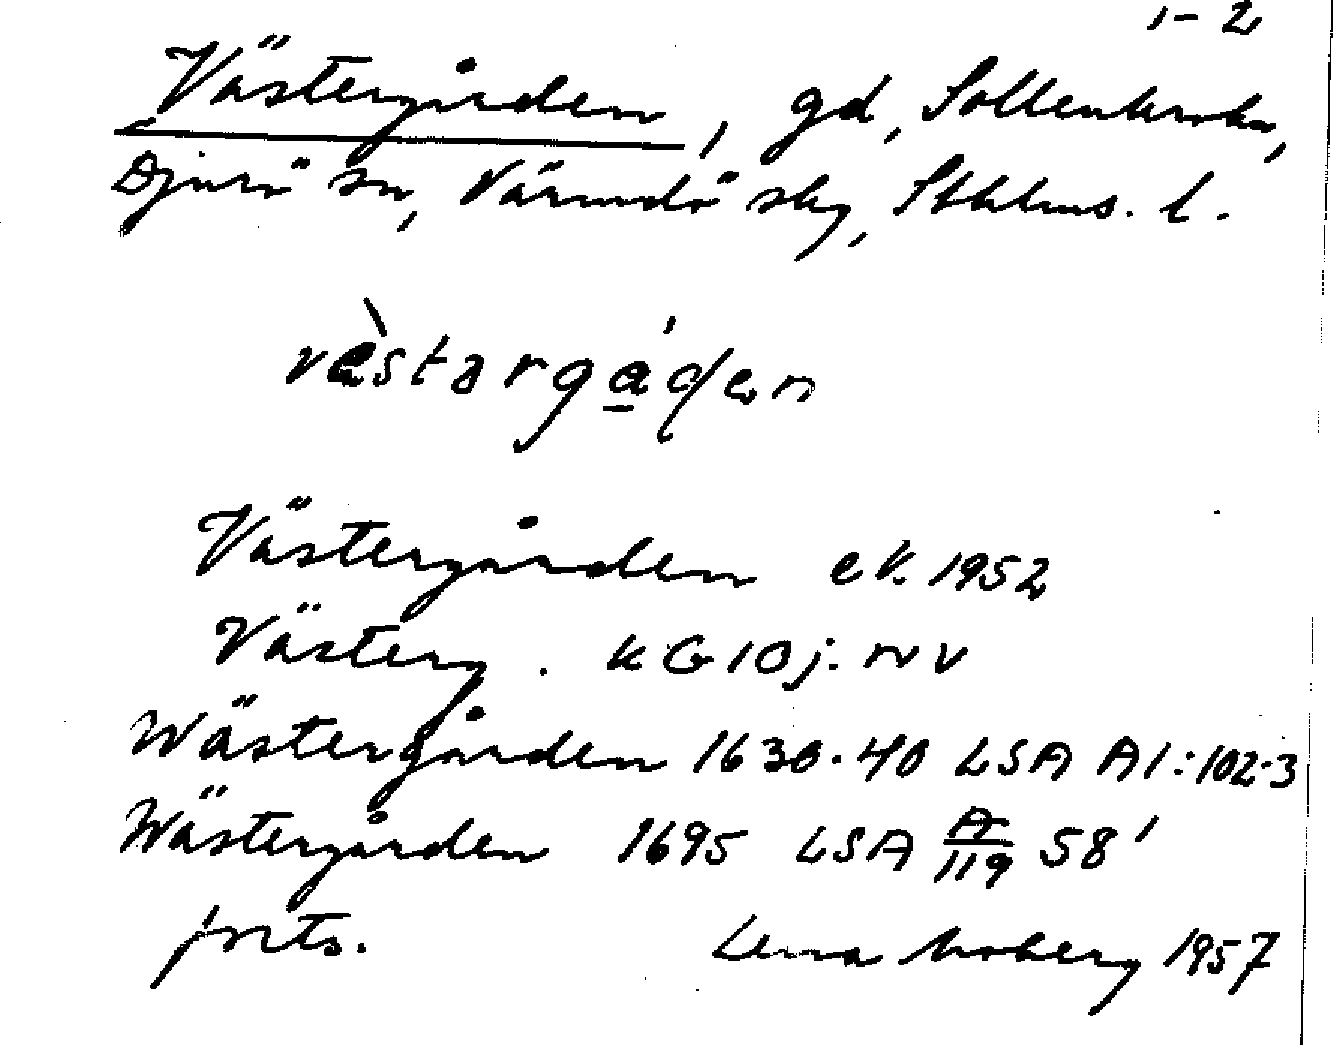 1-2
Västergården, gd, Sollenkroka,
Djurö sn, Värmdö skg, Sthlms. l.
vèstərgá̱ḍen
Västergården ek. 1952
Västerg. KG 10j. NV
Wästergården 1630-40 LSA A1:102-3
Wästergården 1695 LSA A/119 58'
forts. Lena Moberg 1957